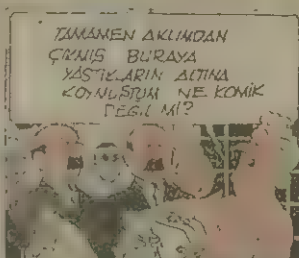 TAMAMEN AKLIMDAN
ÇIKMIŞ BURAYA
YASTIKLARIN ALTINA
KOYMUŞTUM NE KOMİK
DEĞİL Mİ?